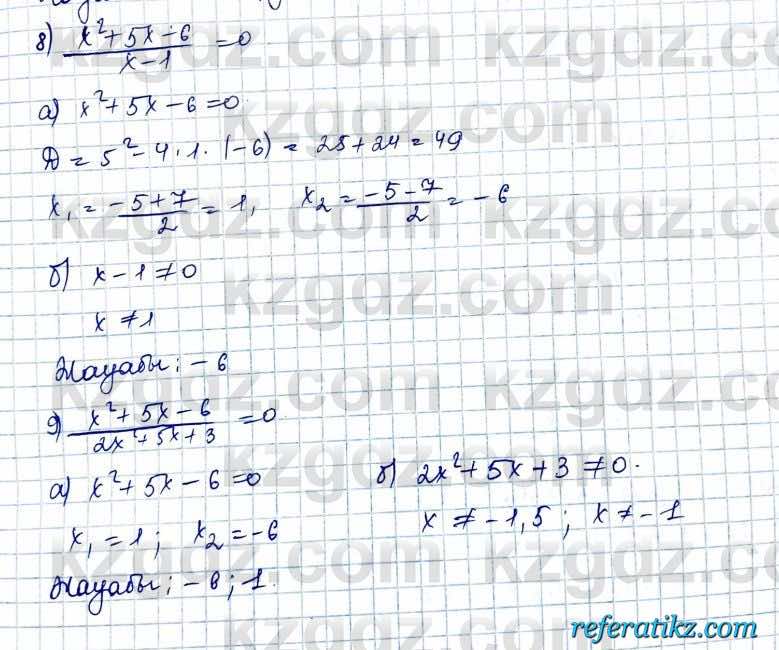 8) (x²+5x-6)/(x-1) =0
а) x²+5x-6=0
D = 5²-4·1·(-6) = 25+24=49
x₁ = (-5+7)/2 = 1, x₂ = (-5-7)/2 = -6
б) x-1≠0
x≠1
Жауабы: -6
9) (x²+5x-6)/(2x²+5x+3) =0
а) x²+5x-6=0
б) 2x²+5x+3≠0.
x₁=1; x₂=-6
x≠-1,5; x≠-1
Жауабы: -6; 1.
kzgdz.com
referatikz.com